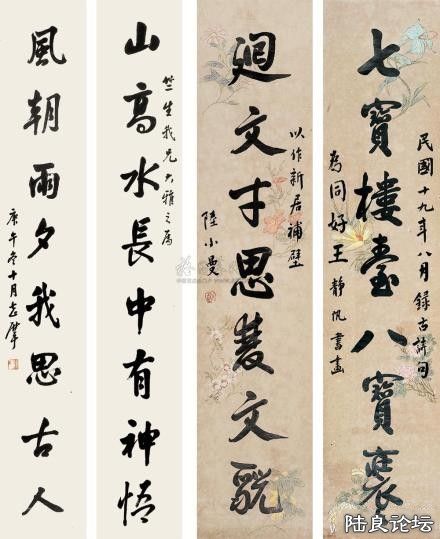 民國十九年八月錄古詩句
七寶樓臺八寶
為同好王靜帆書畫
以作新居補壁
廻文才思文貌
陸小曼
竺生我兄大雅之屬
山高水長中有神悟
風朝雨夕我思古人
庚午冬十月志摩
陆良论坛